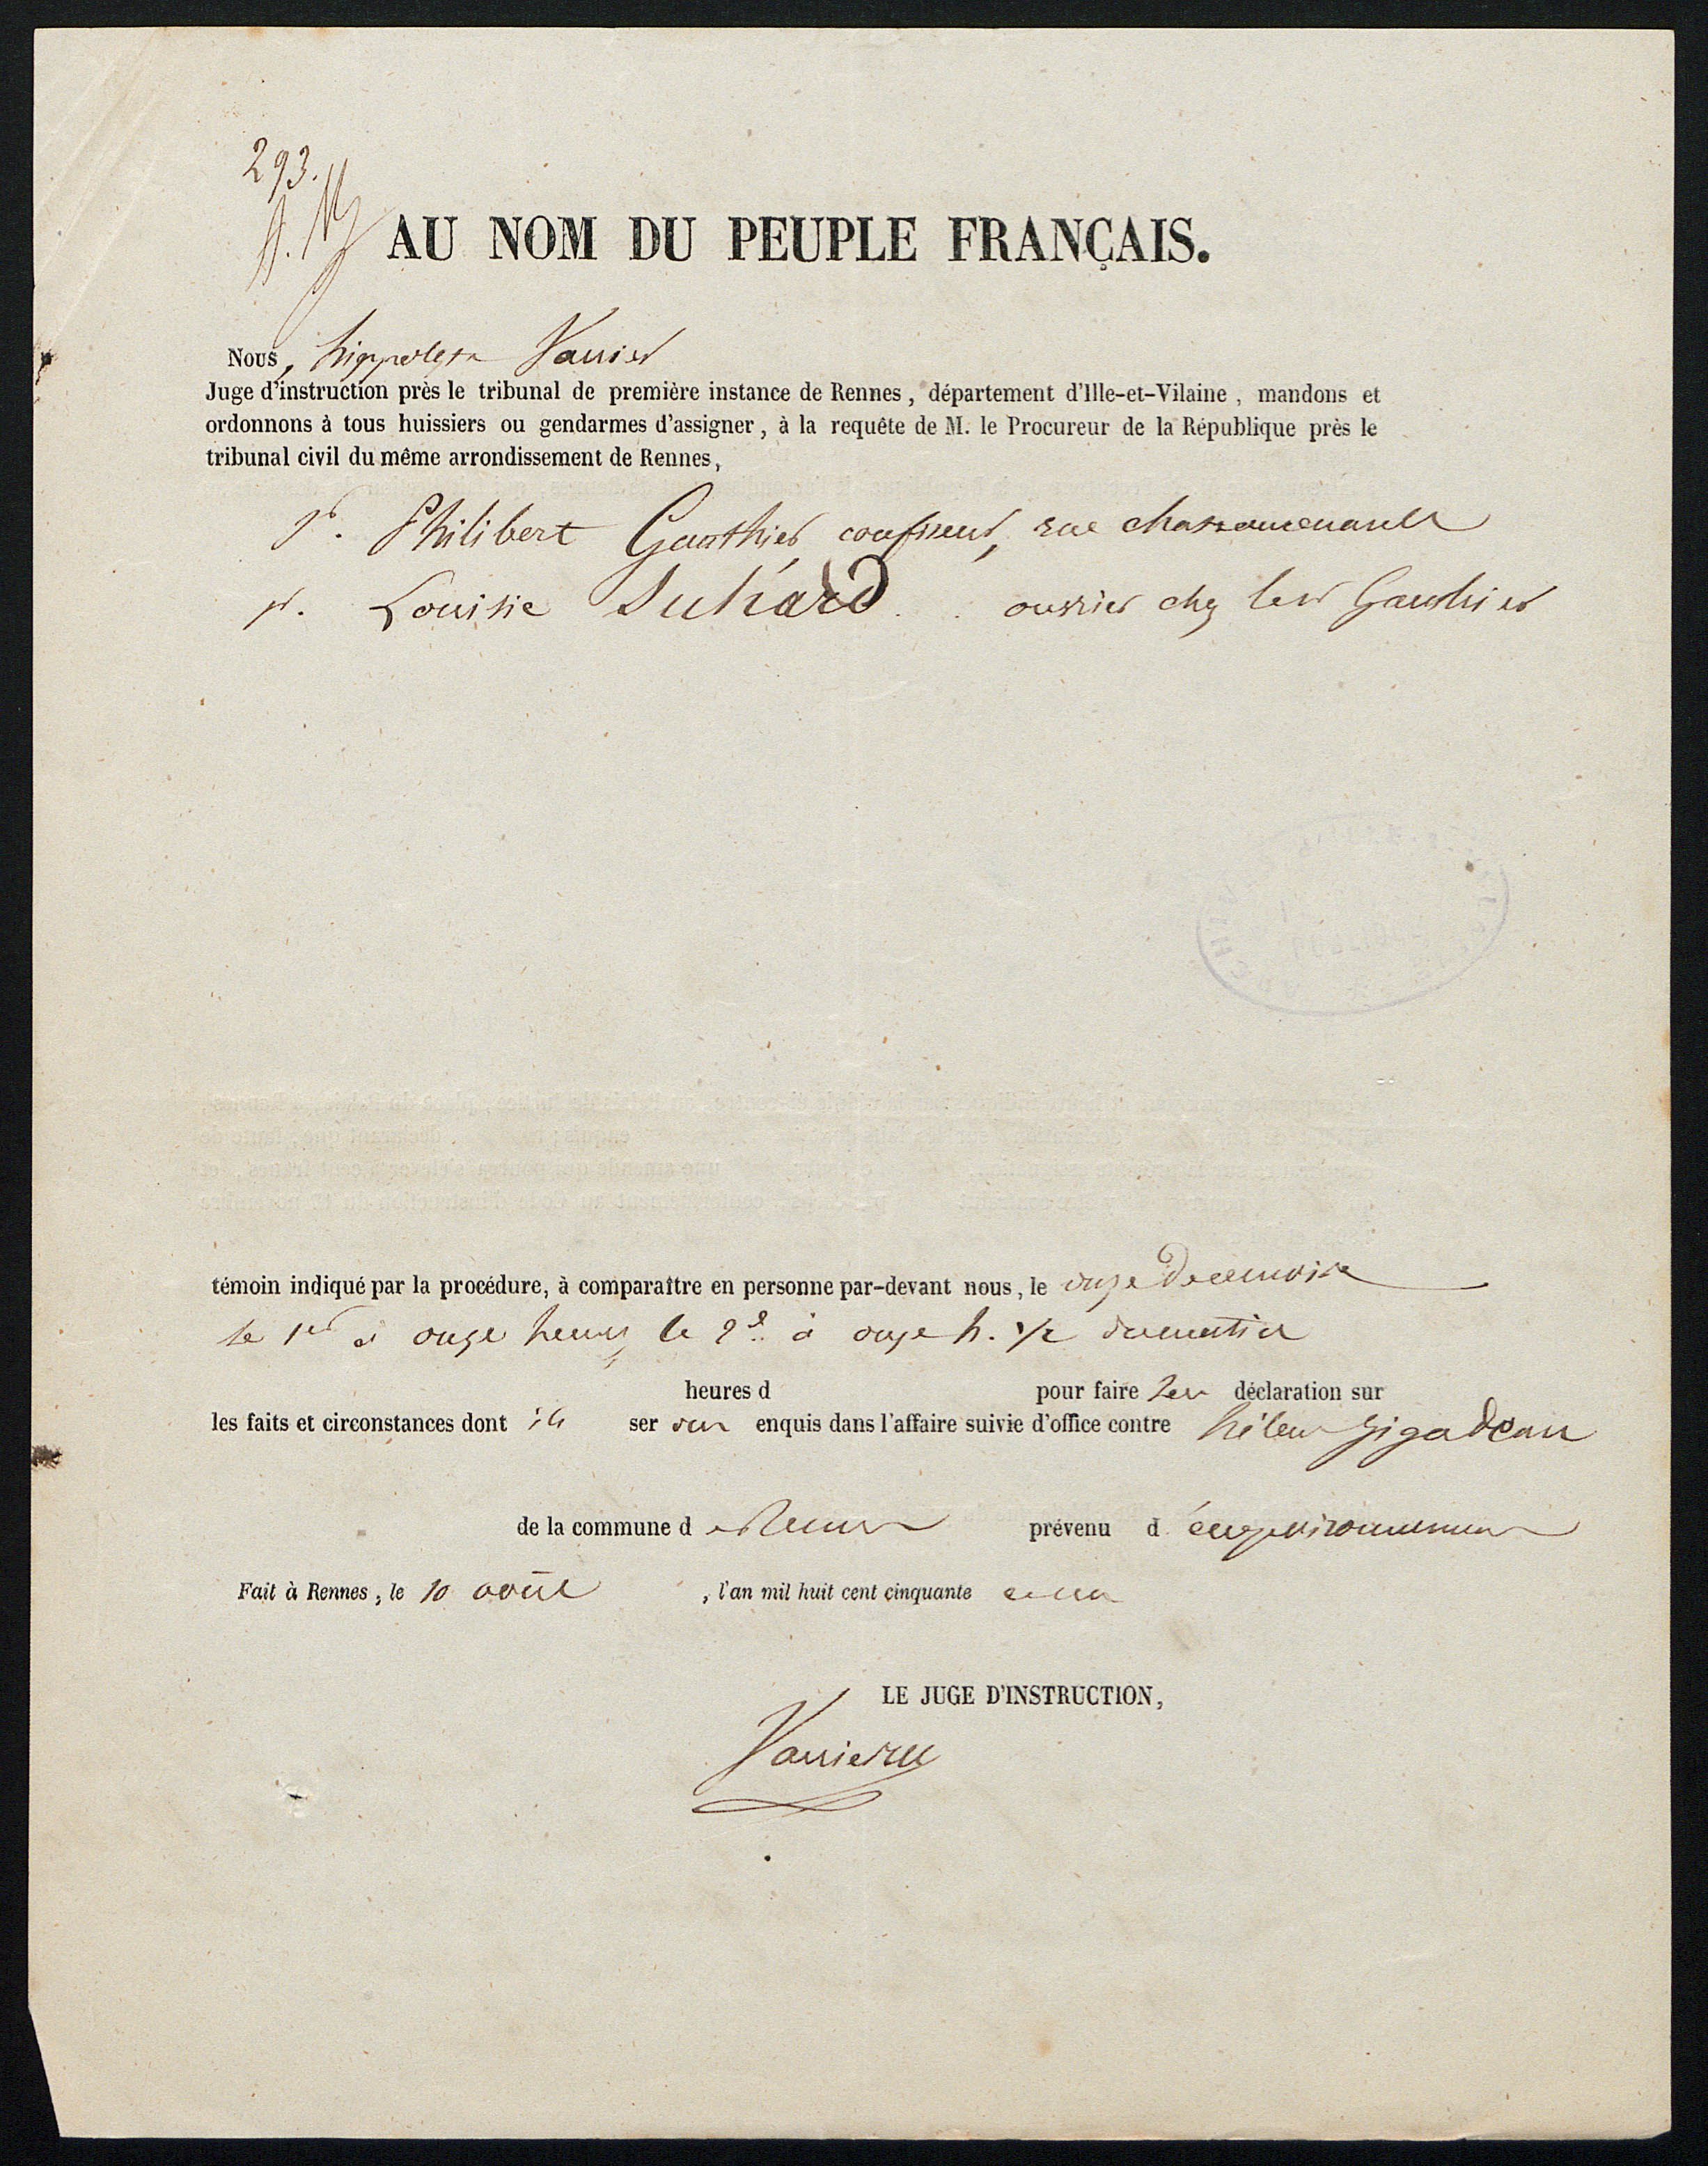 293.
AU NOM DU PEUPLE FRANÇAIS.
Nous, hippolyte Vannier
Juge d'instruction près le tribunal de première instance de Rennes, département d'Ille-et-Vilaine, mandons et
ordonnons à tous huissiers ou gendarmes d'assigner, à la requête de M. le Procureur de la République près le
tribunal civil du même arrondissement de Rennes,
Philibert Gauthier confiseur, rue
Louisie Suhard ouvrier chez le Sr Gauthier
témoin indiqué par la procédure, à comparaître en personne par-devant nous, le onze
le 1er à onze heures, le 2d à onze h. 1/2 du matin
heures d pour faire leur déclaration sur
les faits et circonstances dont ils ser ont enquis dans l'affaire suivie d'office contre hélène Jegadeau
de la commune d e Rennes prévenu d empoisonnement
Fait à Rennes, le 10 août, l'an mil huit cent cinquante et un
LE JUGE D'INSTRUCTION,
Vannier